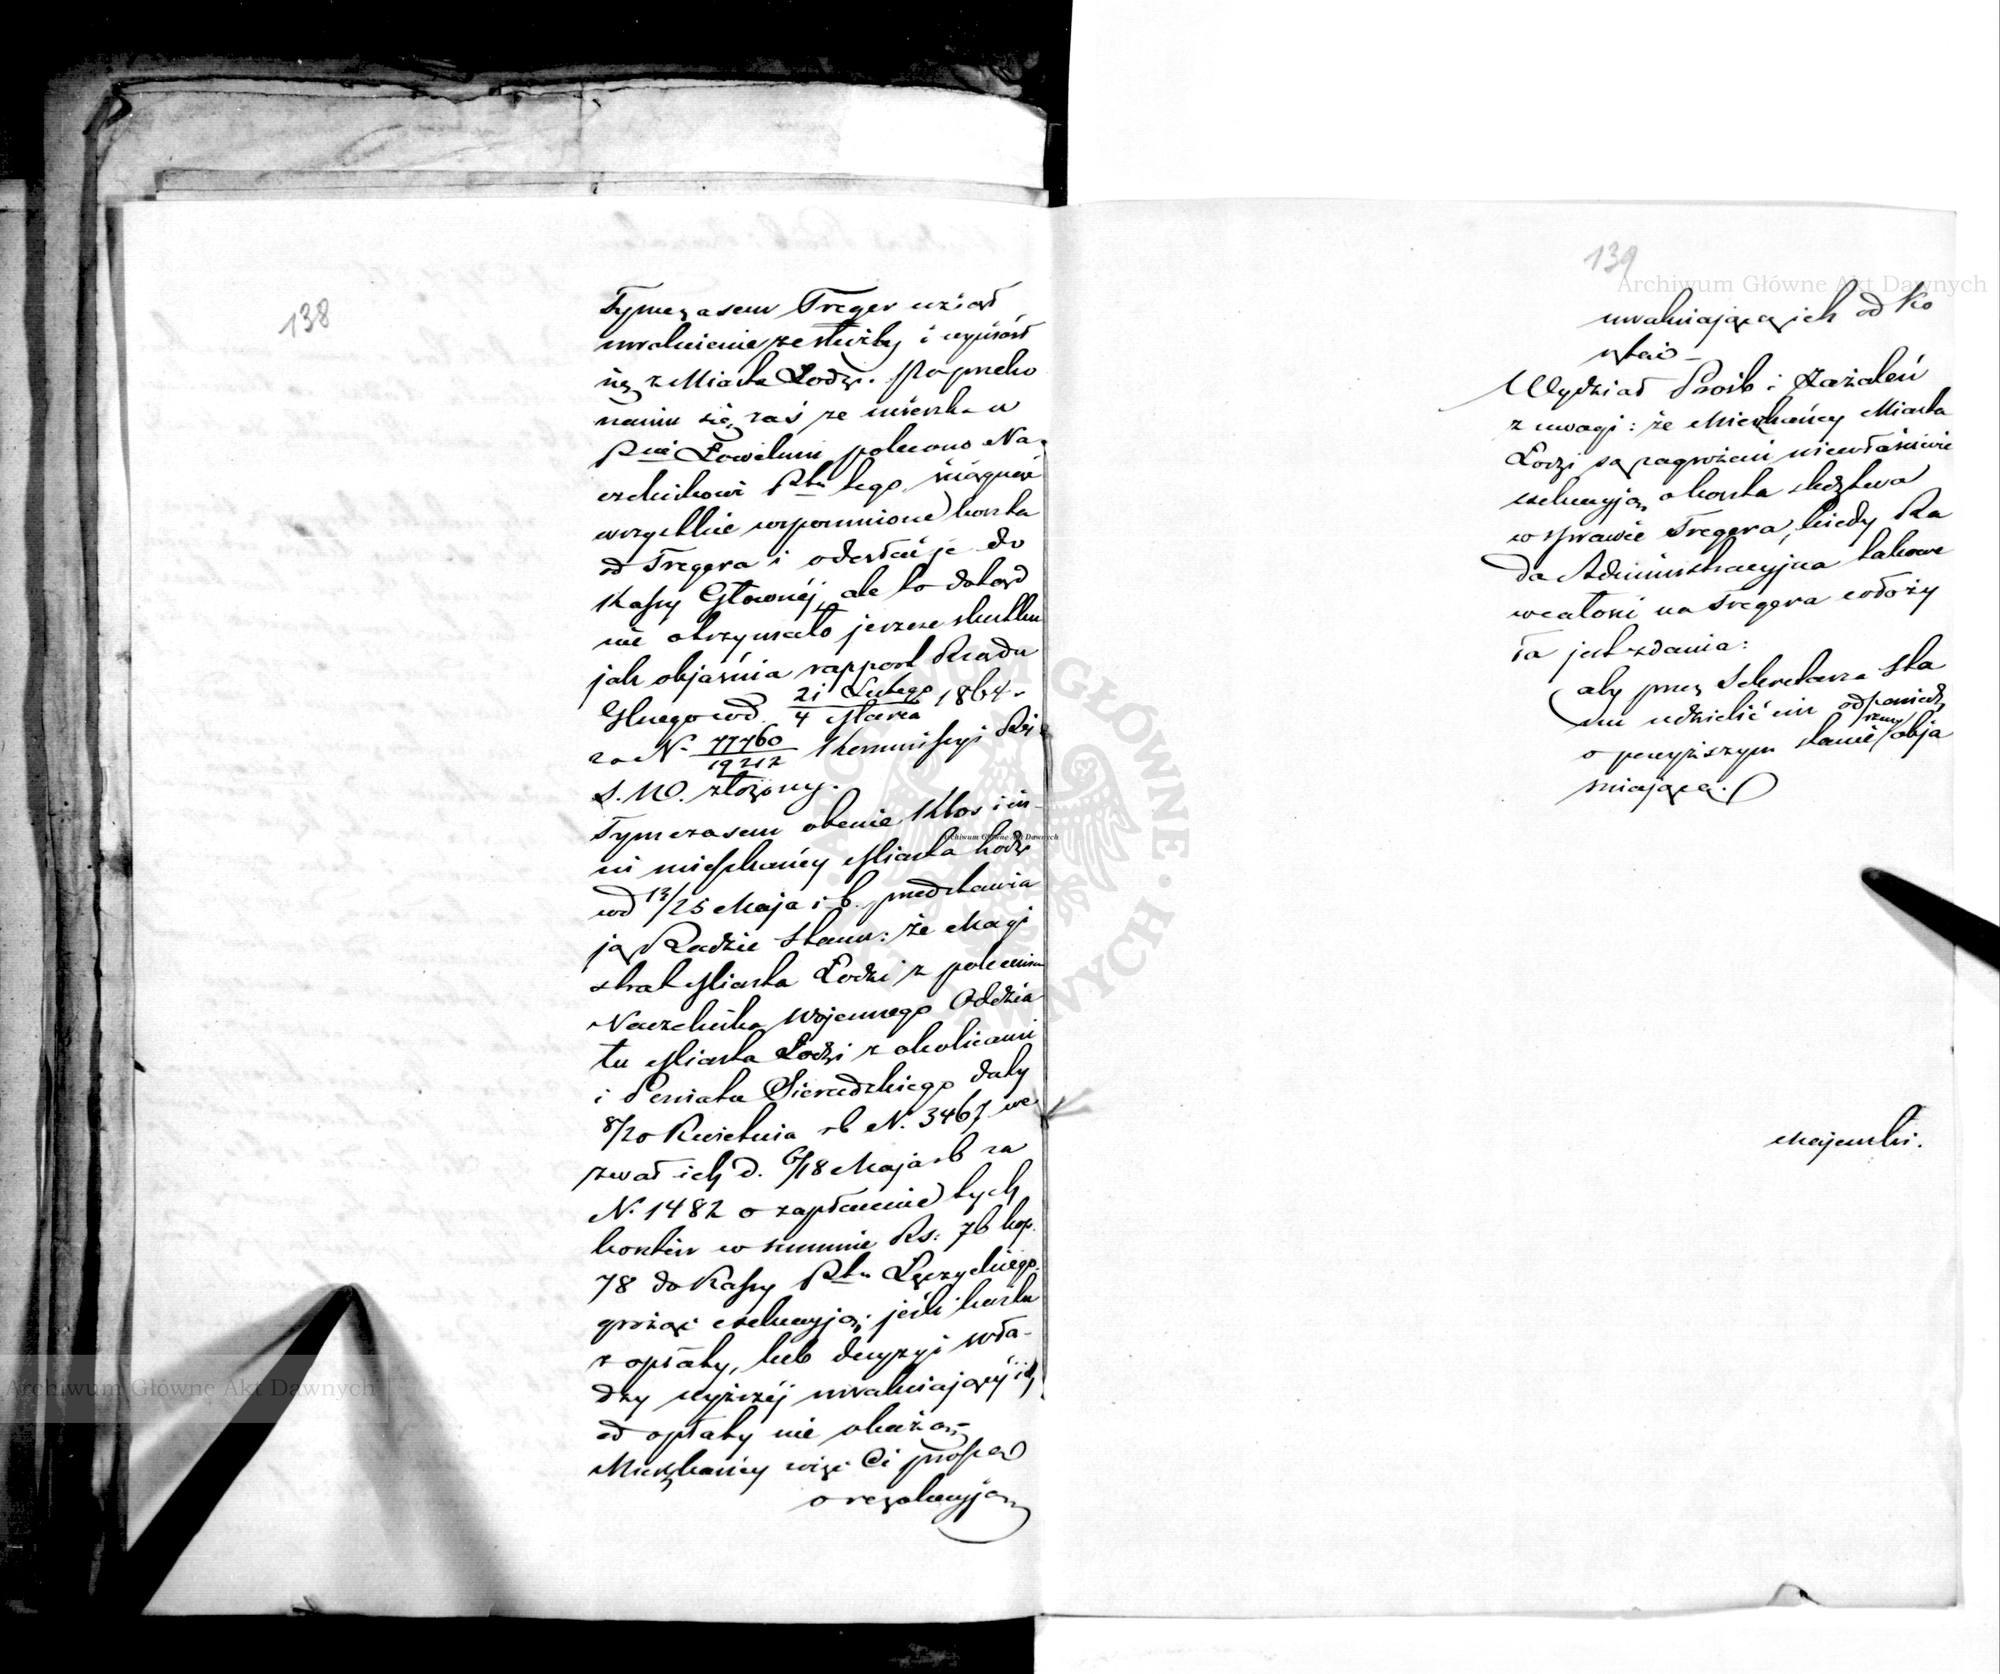 138
Tymczasem Treger uziął
uwolnienie ze służby i wyniósł
się z Miasta Łodzi. Po przeko
naniu się zaś ze mieszka w
Pcie Łowickim polecono Na-
czelnikowi Ptu tego ściągnąć
wszystkie wspomnione koszta
od Tregera i odesłać je do
Kassy Głównéj, ale to dotąd
nie otrzymało jeszcze skutku
jak objaśnia rapport Rządu
Gluego z d. 21 Lutego / 4 Marca 1864 r.
za N. 77760 / 19212 Kommissyi Rz.
S. W. złożony.
Tymczasem obecnie Kłos i in-
ni mieszkańcy Miasta Łodzi
w d 13/25 Maja r. b. przedstawia
ją Radzie Stanu: że Magi
strat Miasta Łodzi z polecenia
Naczelnika Wojennego Oddzia
łu Miasta Łodzi z okolicami
i Powiatu Sieradzkiego daty
8/20 Kwietnia rb N. 3467 we
zwał ich d. 6/18 Maja rb za
N. 1482 o zapłacenie tych
kosztów w summie Rs: 76 kop.
78 do Kassy Ptu Łęczyckiego
grożąc exekucyją; jeśli kwitu
z opłaty, lub decyzyi wła-
dzy wyższéj uwalniającéj ich
od opłaty nie okażą-
Mieszkańcy więc Ci proszą
o rezolucyją
139
uwalniającą ich od Ko
sztów-
Wydział Prośb i Zażaleń
z uwagi: że Mieszkańcy Miasta
Łodzi są zagrożeni niewłaściwie
exekucyją o koszta śledztwa
w sprawie Tregera, kiedy Ra
da Administracyjna takowe
w całości na Tregera włoży
ła jest zdania:
aby przez Sekretarza Sta
nu udzielić im odpowiedź
o powyższym stanie rzeczy obja
śniającą.
Majewski.
Archiwum Główne Akt Dawnych
Archiwum Główne Akt Dawnych
Archiwum Główne Akt Dawnych